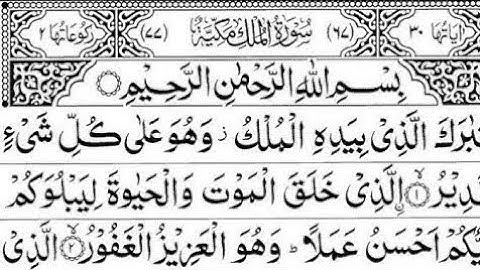 اٰیَاتُهَا ٣٠ (٦٧) سُوْرَةُ الْمُلْكِ مَكِّیَّةٌ (٧٧) رُكُوْعَاتُهَا ٢
بِسْمِ اللّٰهِ الرَّحْمٰنِ الرَّحِیْمِ
بٰرَكَ الَّذِیْ بِیَدِهِ الْمُلْكُ ز وَهُوَ عَلٰی كُلِّ شَیْءٍ
دِیْرُ ۙ ۝١ الَّذِیْ خَلَقَ الْمَوْتَ وَالْحَیٰوةَ لِیَبْلُوَكُمْ
یُّكُمْ اَحْسَنُ عَمَلًا ؕ وَهُوَ الْعَزِیْزُ الْغَفُوْرُ ۙ ۝٢ الَّذِیْ